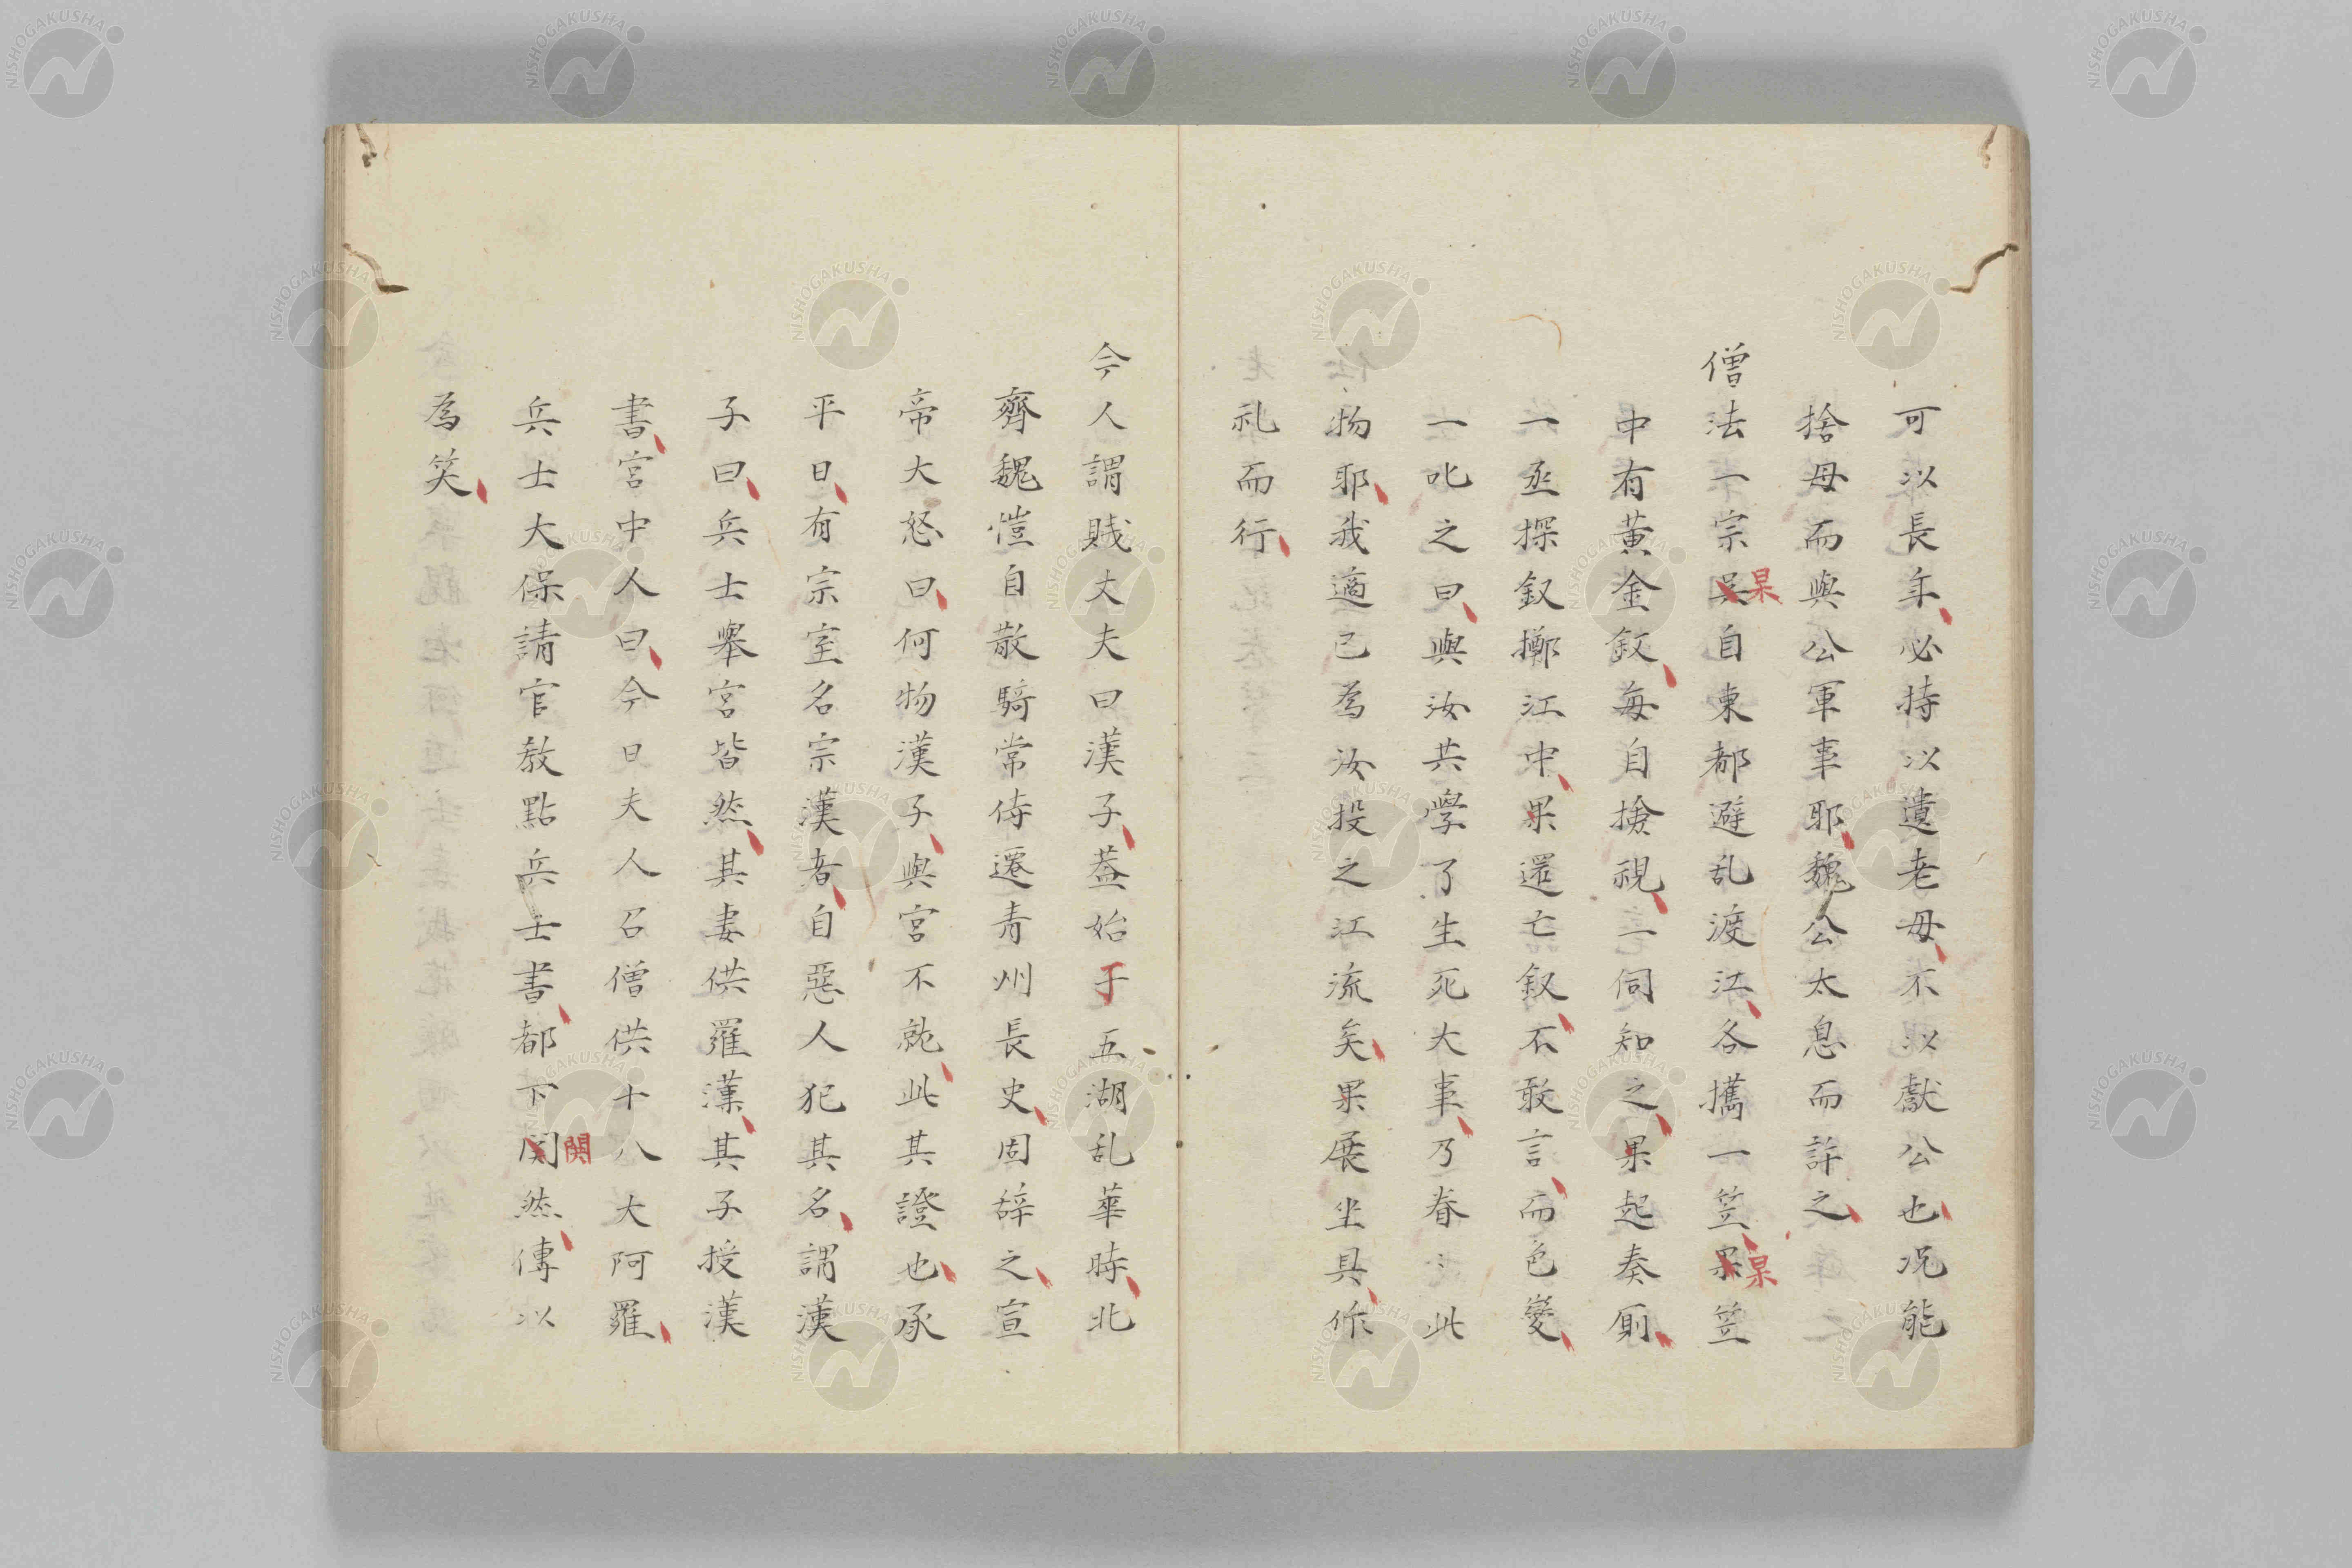 可以長年必持以遺老母不以獻公也况能
捨母而與公軍事耶魏公太息而許之
僧法一宗呉杲自東都避乱渡江各攜一笠果杲笠
中有黄金釵每自撿視一伺知之果起奏厠
一丞探釵擲江中果還亡釵不敢言而色變
一叱之曰與汝共學了生死大事乃眷〻此
物耶我適已為汝投之江流矣果展坐具作
礼而行
今人謂賎丈夫曰漢子葢始于五湖乱華時北
齊魏愷自散騎常侍遷青州長史固辞之宣
帝大怒曰何物漢子與宮不就此其證也承
平日有宗室名宗漢者自惡人犯其名謂漢
子曰兵士舉宮皆然其妻供羅漢其子授漢
書宮中人曰今日夫人召僧供十八大阿羅
兵士大保請官教點兵士書都下関鬨然傳以
為笑
NISHOGAKUSHA